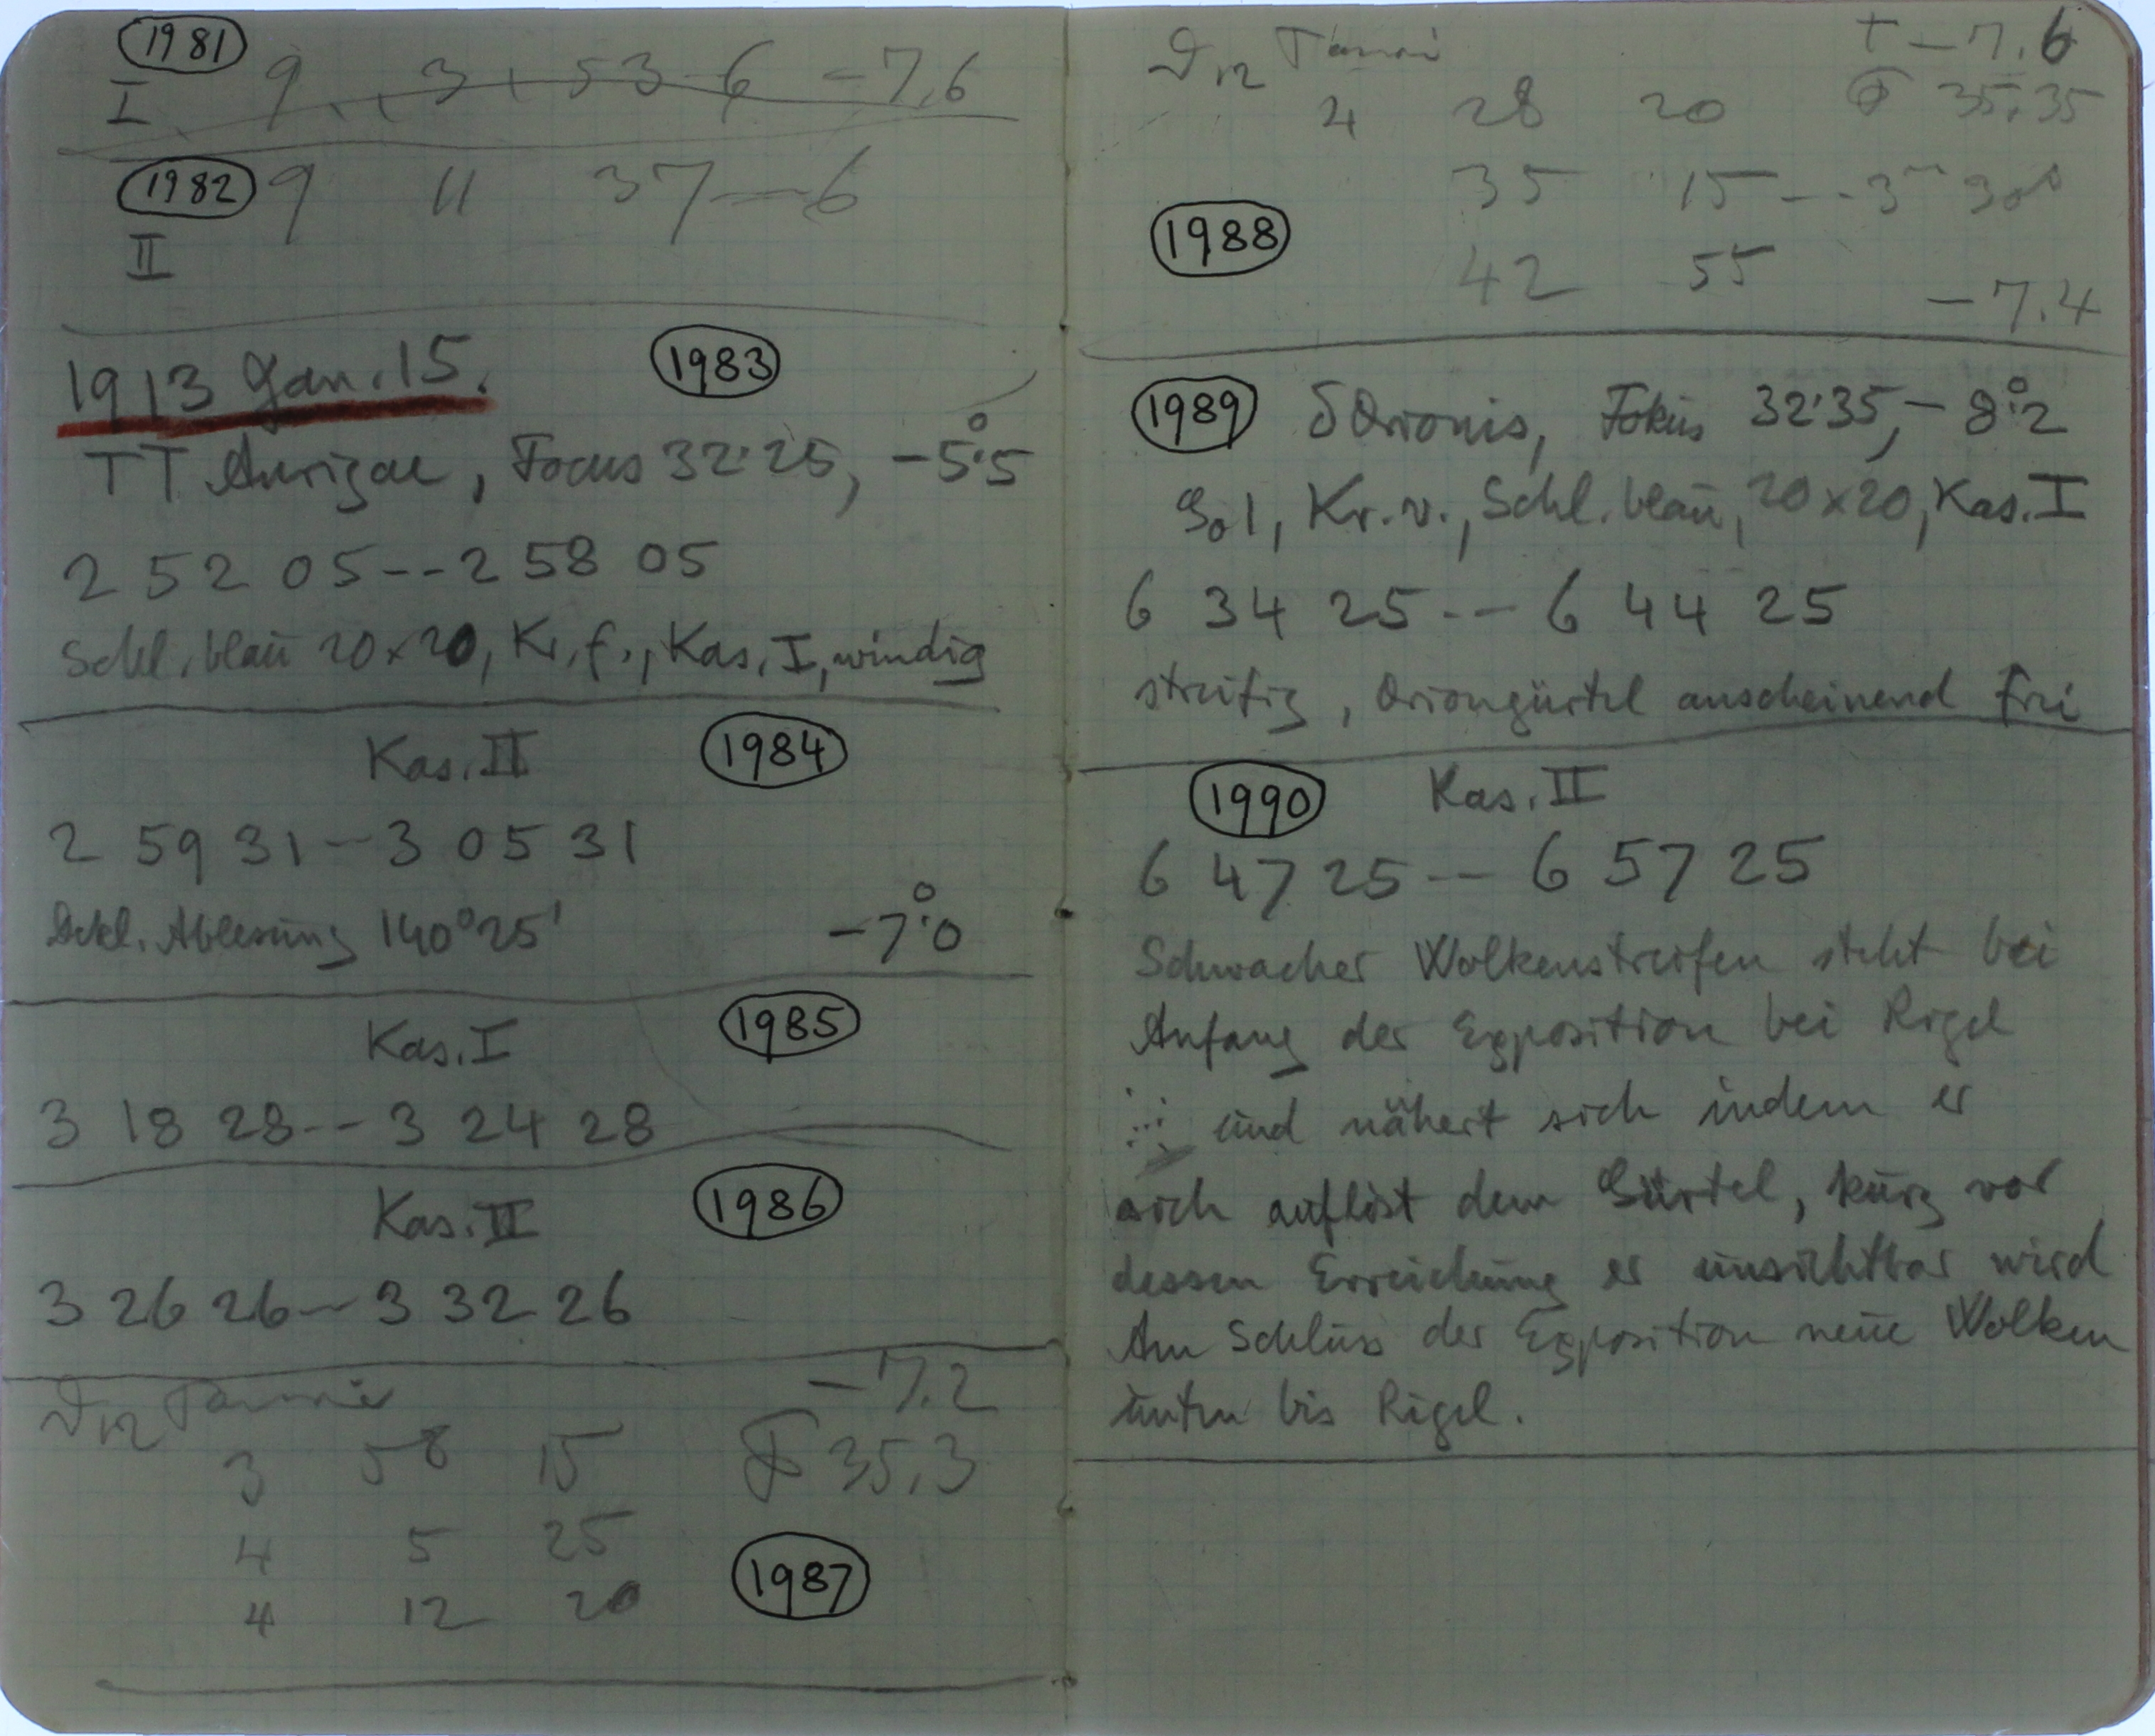 1981
I 9 3 53 6 -7.6
1982 9 11 37--6
II
1913 Jan. 15. 1983
TT Aurigae, Focus 32.25, -5°.5
2 52 05--2 58 05
Schl. blau 20x20, Kr. f., Kas. I, windig
Kas. II 1984
2 59 31--3 05 31
Dekl. Ablesung 140°25' -7°.0
Kas. I 1985
3 18 28--3 24 28
Kas. II 1986
3 26 26--3 32 26
-7.2
Tauri
3 58 15 F 35,3
4 5 25
4 12 20
1987
Tauri -7.6
4 28 20 35.35
35 15--3m 30s
1988
42 55
-7.4
1989 δ Orionis, Fokus 32.35, -8°.2
Kr. v., Schl. blau, 20x20, Kas. I
6 34 25--6 44 25
streifig, Oriongürtel anscheinend frei
1990 Kas. II
6 47 25--6 57 25
Schwacher Wolkenstreifen steht bei
Anfang der Exposition bei Rigel
und nähert sich indem er
sich auflöst dem Gürtel, kurz vor
dessen Erreichung er unsichtbar wird
Am Schluss der Exposition neue Wolken
unten bis Rigel.